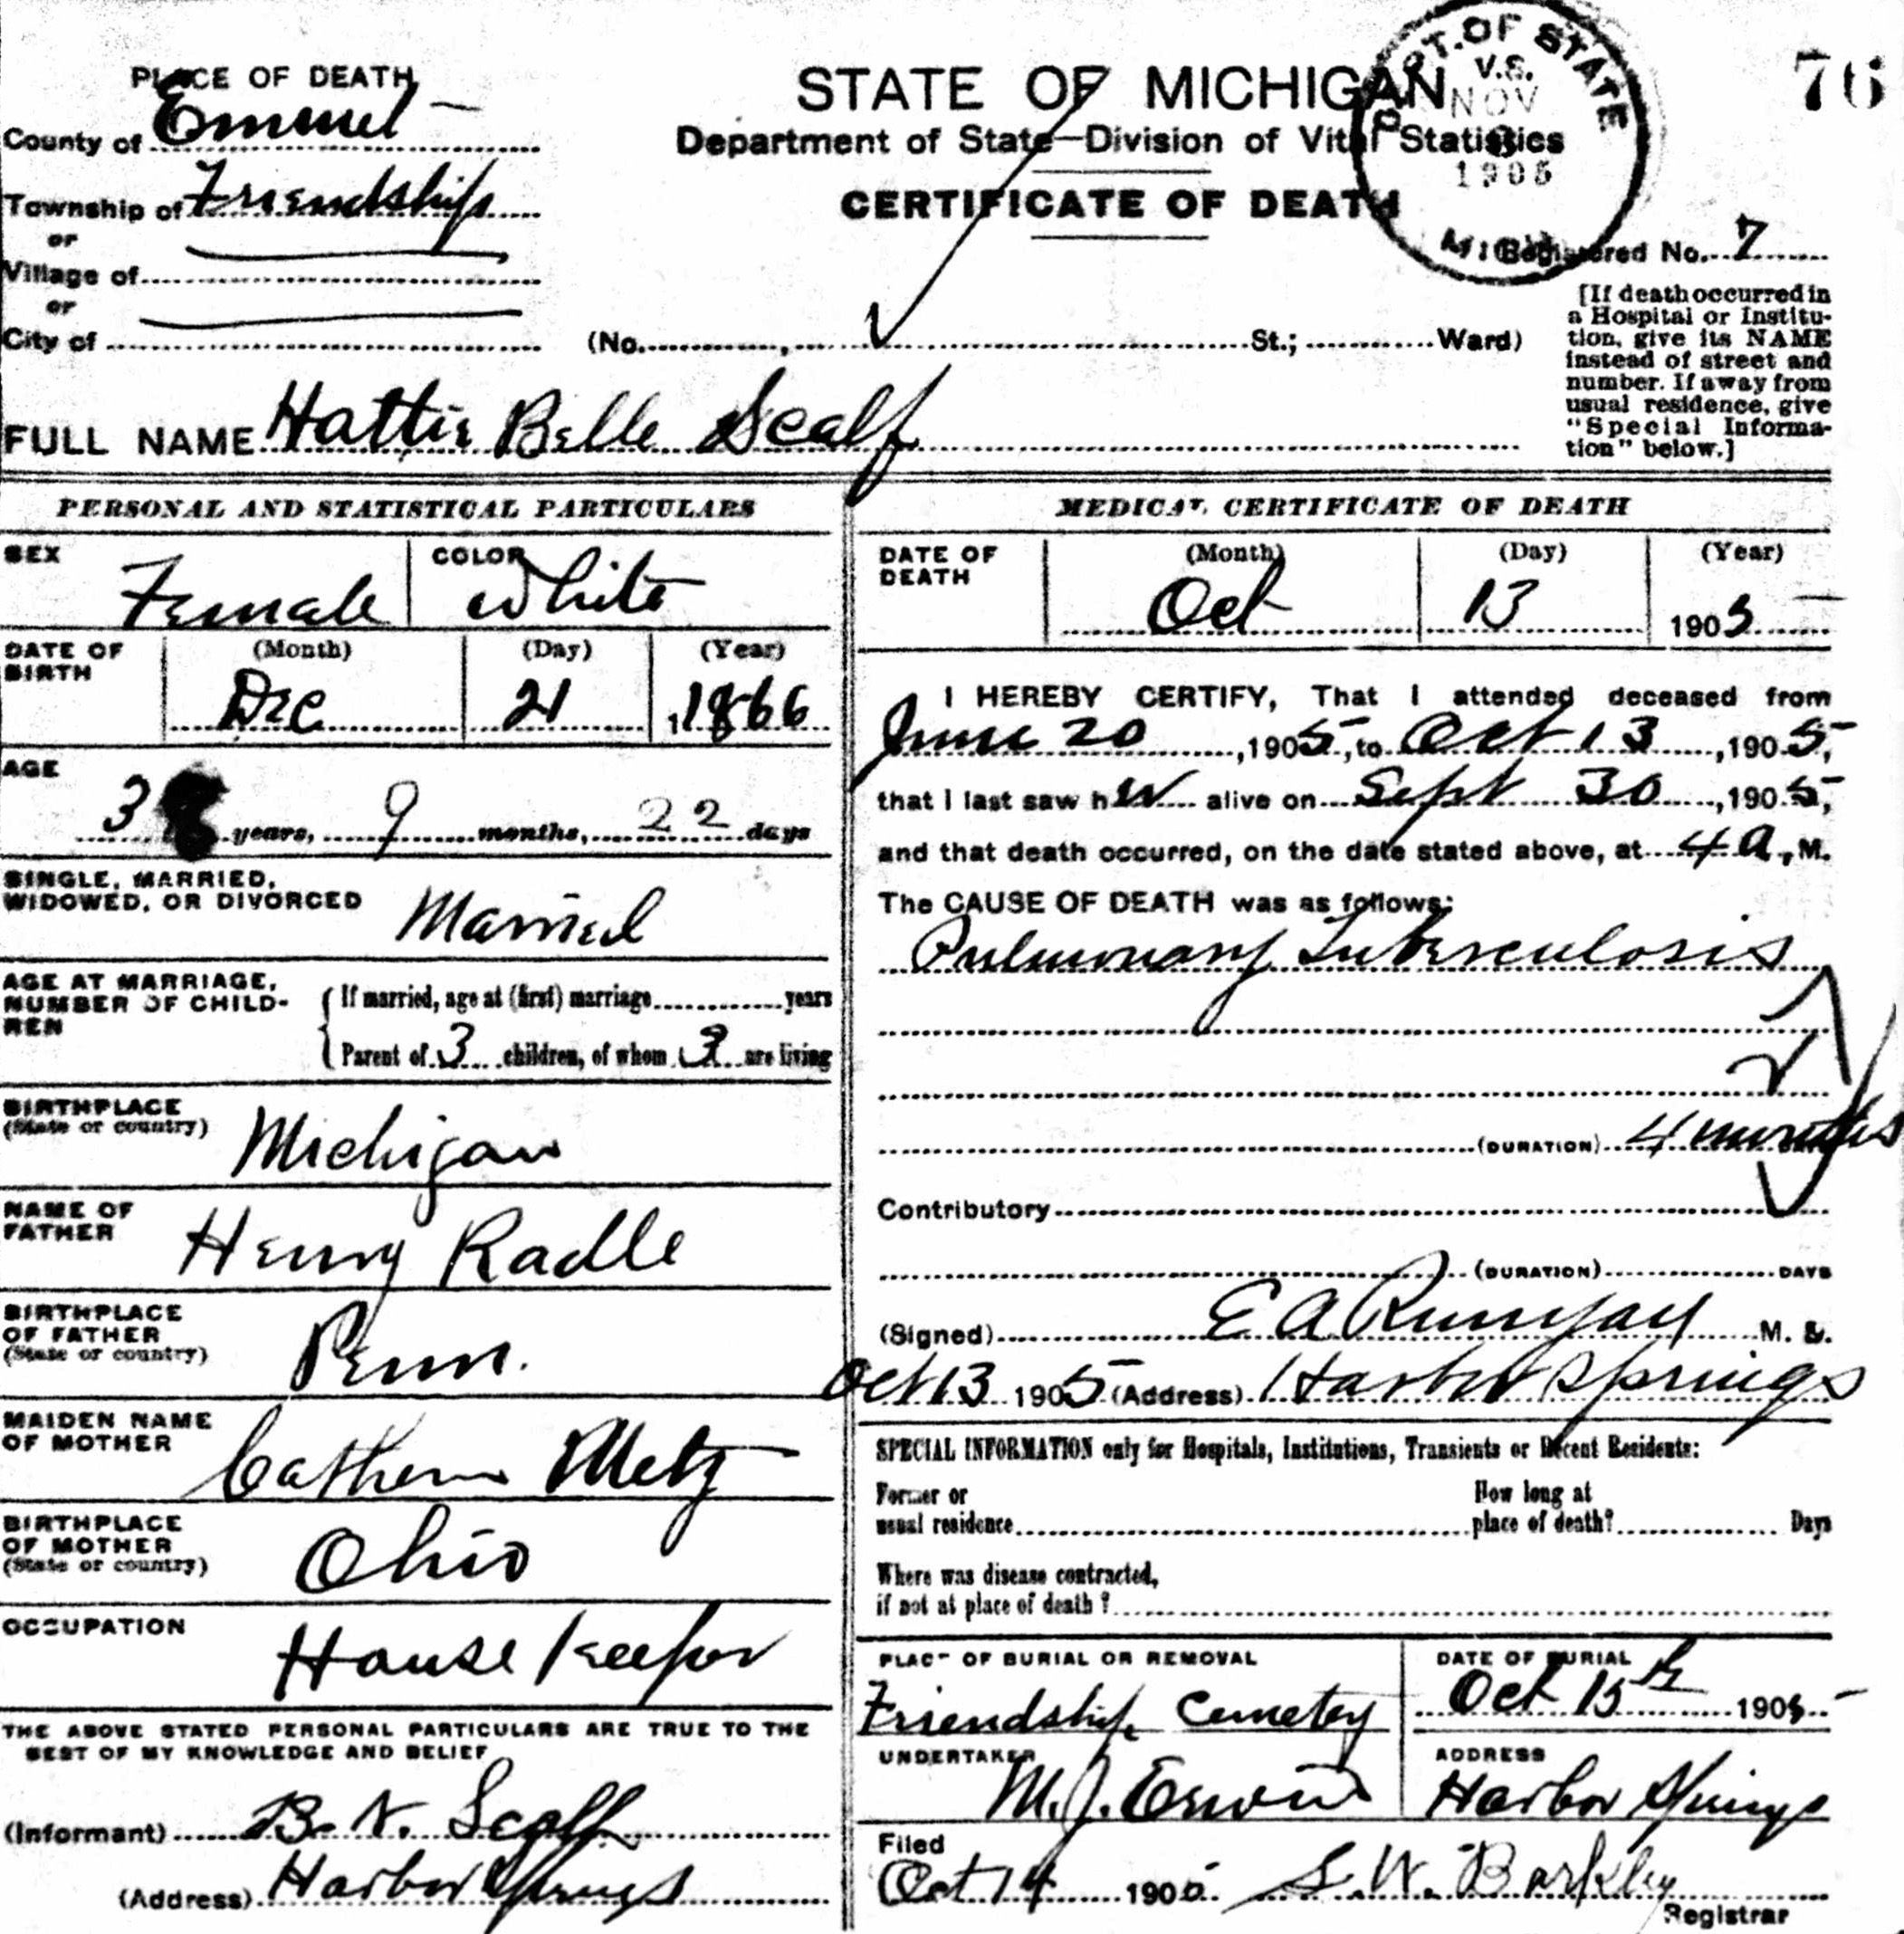 76
PLACE OF DEATH
County of Emmet
Township of Friendship
or
Village of
or
City of
STATE OF MICHIGAN
Department of State—Division of Vital Statistics
CERTIFICATE OF DEATH
DEPT. OF STATE
V.S.
NOV
1905
MICH.
Registered No. 7
(No. , St.; Ward)
[If death occurred in
a Hospital or Institu-
tion, give its NAME
instead of street and
number. If away from
usual residence, give
"Special Informa-
tion" below.]
FULL NAME Hattie Belle Scalf
PERSONAL AND STATISTICAL PARTICULARS
SEX Female
COLOR White
DATE OF BIRTH
(Month) (Day) (Year)
Dec 21 , 1866
AGE
38 years, 9 months, 22 days
SINGLE, MARRIED,
WIDOWED, OR DIVORCED Married
AGE AT MARRIAGE,
NUMBER OF CHILD-
REN
If married, age at (first) marriage years
Parent of 3 children, of whom 3 are living
BIRTHPLACE
(State or country) Michigan
NAME OF
FATHER Henry Radle
BIRTHPLACE
OF FATHER
(State or country) Penn.
MAIDEN NAME
OF MOTHER Cathern Metz
BIRTHPLACE
OF MOTHER
(State or country) Ohio
OCCUPATION House Keeper
THE ABOVE STATED PERSONAL PARTICULARS ARE TRUE TO THE
BEST OF MY KNOWLEDGE AND BELIEF
(Informant) B. N. Scalf
(Address) Harbor Springs
MEDICAL CERTIFICATE OF DEATH
DATE OF DEATH
(Month) (Day) (Year)
Oct 13 1905
I HEREBY CERTIFY, That I attended deceased from
June 20, 1905, to Oct 13, 1905,
that I last saw her alive on Sept 30, 1905,
and that death occurred, on the date stated above, at 4 a, M.
The CAUSE OF DEATH was as follows:
Pulmonary Tuberculosis
(DURATION) 4 months
Contributory
(DURATION) DAYS
(Signed) E A Runyan M. D.
Oct 13 1905 (Address) Harbor Springs
SPECIAL INFORMATION only for Hospitals, Institutions, Transients or Recent Residents:
Former or
usual residence
How long at
place of death? Days
Where was disease contracted,
if not at place of death?
PLACE OF BURIAL OR REMOVAL
Friendship Cemetery
DATE OF BURIAL
Oct 15th 1905
UNDERTAKER
M. J. Erwin
ADDRESS
Harbor Springs
Filed
Oct 14 1905 S. W. Barkley
Registrar